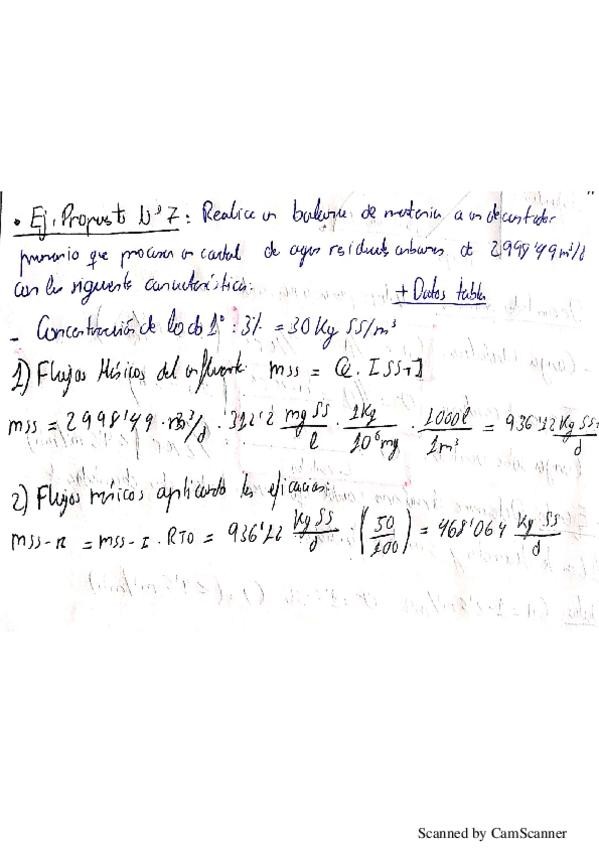 • Ej. Propuesto Nº 7: Realice un balance de materia a un decantador
primario que procesa un caudal de aguas residuales urbanas de 2998'49 m³/d
con las siguientes características: + Datos tabla
- Concentración de lodo 1º: 3% = 30 Kg SS/m³
1) Flujos Másicos del influente: mss = Q. [SS-I]
mss = 2998'49 m³/d · 312'2 mg SS/l · 1Kg/10⁶mg · 1000l/1m³ = 936'12 Kg SS/d
2) Flujos másicos aplicando las eficacias:
mss-R = mss-I · RTO = 936'12 Kg SS/d · (50/100) = 468'064 Kg SS/d
Scanned by CamScanner